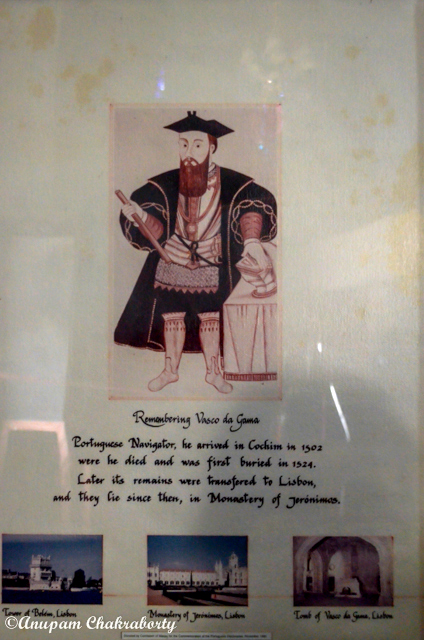 Remembering Vasco da Gama
Portuguese Navigator, he arrived in Cochim in 1502
were he died and was first buried in 1524.
Later its remains were transfered to Lisbon,
and they lie since then, in Monastery of Jerónimos.
Tower of Belém, Lisbon
Monastery of Jerónimos, Lisbon
Tomb of Vasco da Gama, Lisbon
©Anupam Chakraborty